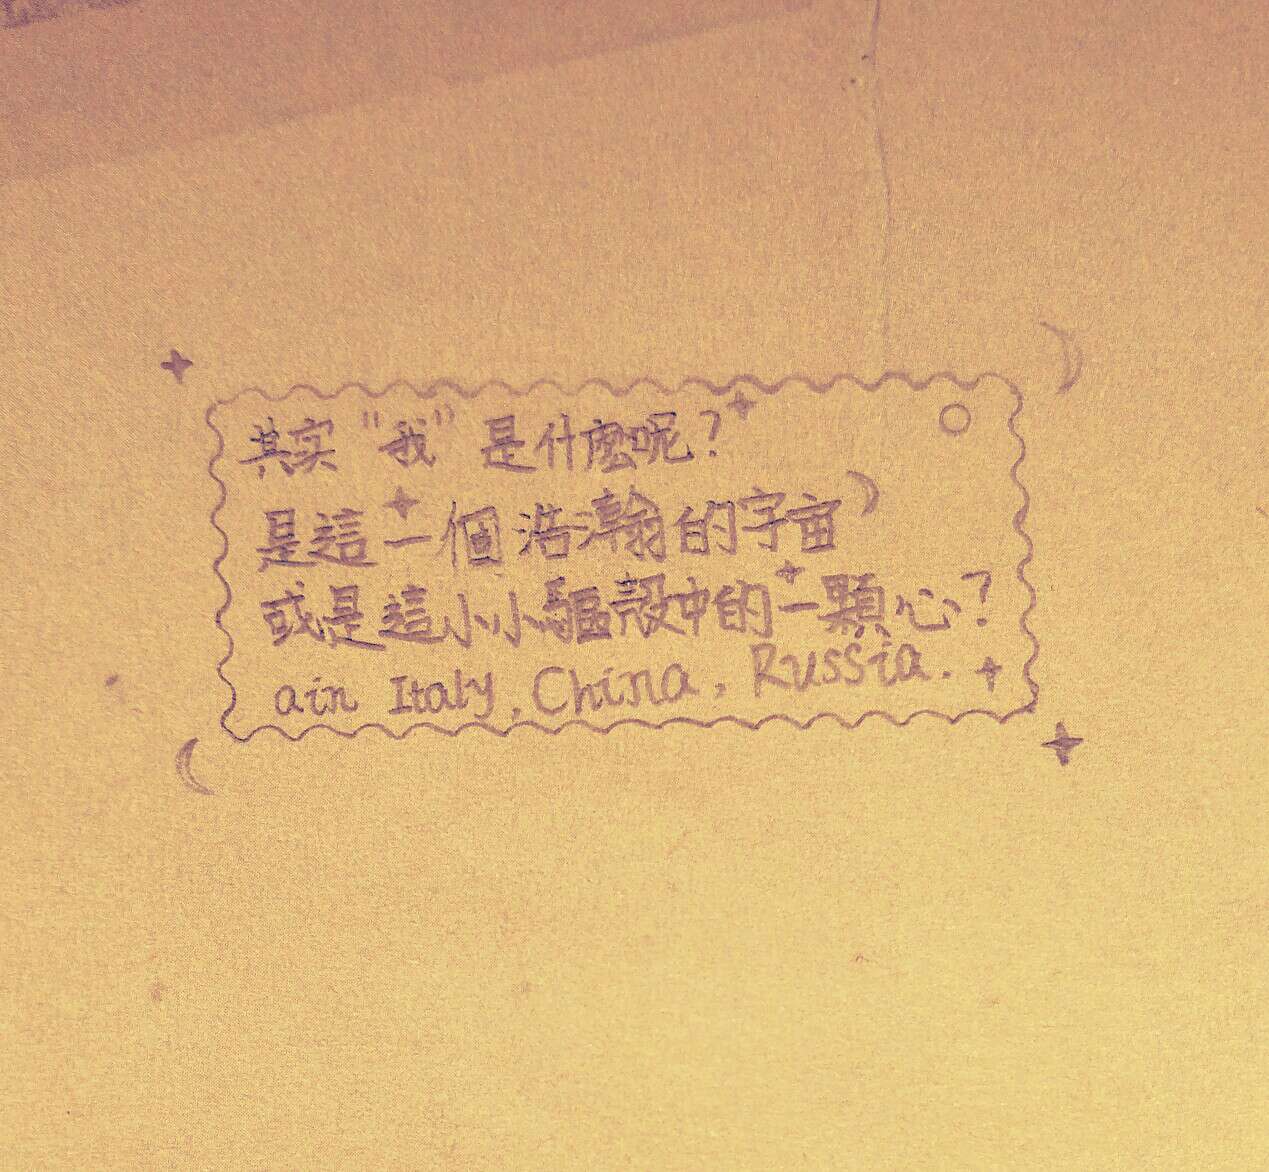 其实“我”是什麼呢？
是這一個浩瀚的宇宙
或是這小小驅殼中的一顆心？
ain Italy, China, Russia.